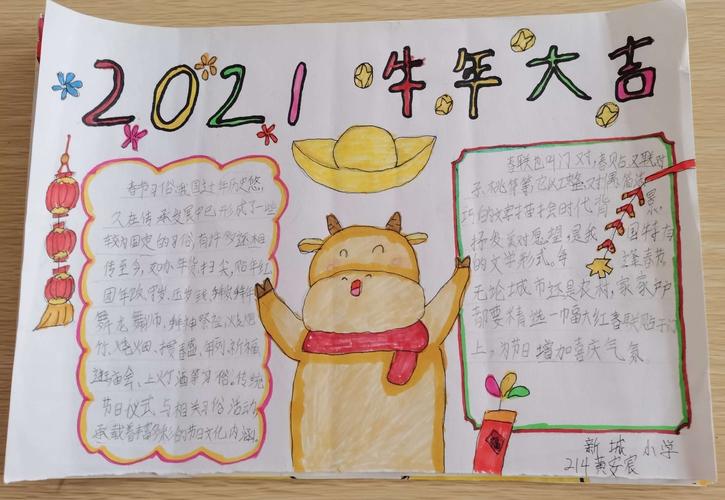 2021 牛年大吉
春节习俗我国过年历史悠
久在传承发展中已形成了一些
较为固定的习俗有许多还相
传至今,如办年货扫尘,贴年红
团年饭,守岁,压岁钱,
舞龙舞师,拜神祭祖,
竹,烧烟,祈福
逛庙会、上灯酒等习俗。传统
节日仪式与相关习俗活动,
承载着丰富多彩的节日文化内涵。
春联也叫门对,春贴,对联对
子,桃符等它以对偶简洁
巧的文字描绘时代背景
抒发美好愿望,是我国特有
的文学形式。每逢春节
无论城市还是农村,家家户户
都要精选一幅大红春联贴于门
上,为节日增加喜庆气氛。
新城小学
214黄安宸